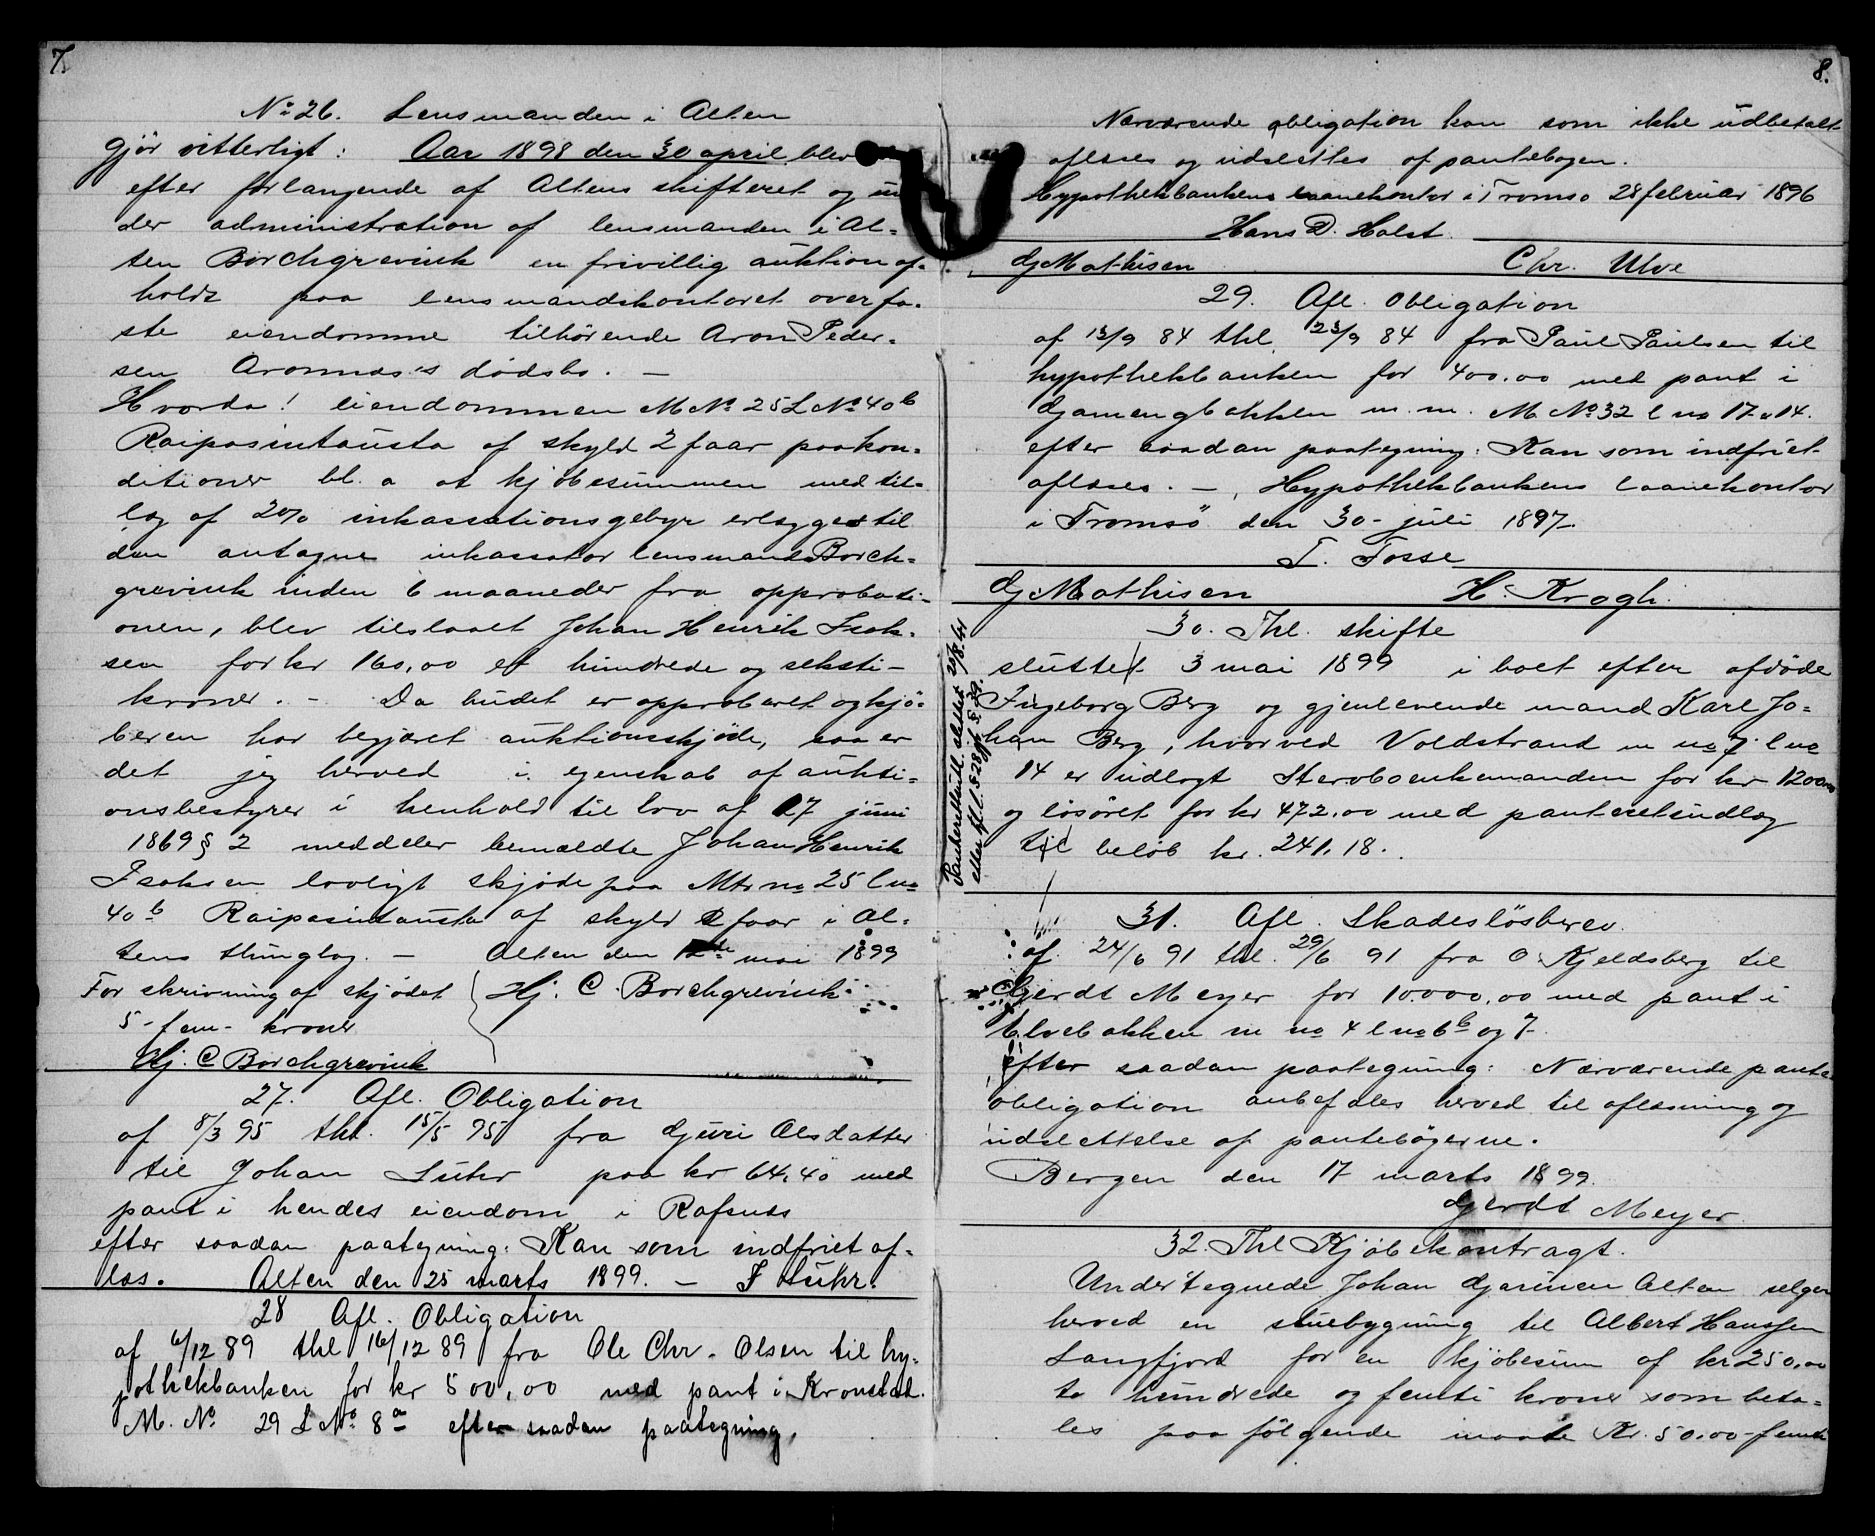 7.
No 26. Lensmanden i Alten
gjør vitterligt: Aar 1898 den 30 april blev
efter forlangende af Altens skifteret og un
der administration af lensmanden i Al-
ten Borchgrevink en frivillig auktion af-
holdt paa lensmandskontoret over fa-
ste eiendomme tilhørende Aron Peder-
sen Aronnæs's dødsbo. —
Hvorda! eiendommen M No 25 L No 40 b
Raipasintausta af skyld 2 faar paa kon-
ditioner bl. a at kjøbesummen med til-
læg af 2% inkassationsgebyr erlægges til
den antagne inkassator lensmand Borch-
grevink inden 6 maaneder fra approbati-
onen, blev tilslaaet Johan Henrik Isak-
sen for kr 160,00 et hundrede og seksti-
kroner. - Da budet er approberet og kjö-
beren har begjæret auktionsskjöde, saa er
det jeg herved i egenskab af aukti-
onsbestyrer i henhold til lov af 17 juni
1869 § 2 meddeler bemældte Johan Henrik
Isaksen lovligt skjøde paa Mtr no 25 l no
40 b Raipasintausta af skyld 2 faar i Al-
tens thinglag. — Alten den 12te mai 1899
For skrivning af skjødet Hj. C. Borchgrevink
5 - fem - kroner
Hj. C Borchgrevink
27. Afl. Obligation
af 8/3 95 thl. 15/5 95 fra Guri Olsdatter
til Johan Luhr paa kr 64,40 med
pant i hendes eiendom i Rafsnæs
efter saadan paategning: Kan som indfriet af-
læs. Alten den 25 marts 1899. — J Luhr.
28 Afl. Obligation
af 6/12 89 thl 16/12 89 fra Ole Chr. Olsen til hy-
pothekbanken for kr 500,00 med pant i Kronstad
M. No. 29 L No. 8 a efter saadan paategning,
8.
Nærværende obligation kan som ikke udbetalt
aflæses og udslettes af pantebogen.
Hypothekbankens laanekontor i Tromsø 28 februar 1896
Hans D. Holst.
Gj Mathisen Chr. Ulve
29. Afl. Obligation
af 13/9 84 thl. 23/9 84 fra Paul Paulsen til
hypothekbanken for 400,00 med pant i
Gjamengbakken m. m. M No 32 l no 17 o 14.
efter saadan paategning: Kan som indfriet
aflæses. —, Hypothekbankens laanekontor
i Tromsö den 30 - juli 1897.
T. Fosse
Gj Mathisen H. Krogh.
30. Thl. skifte
sluttet 3 mai 1899 i boet efter afdøde
Ingeborg Berg og gjenlevende mand Karl Jo-
han Berg, hvorved Voldstrand m no 7 l no
14 er udlagt Stervboenkemanden for kr 1200,00
og løsöret for kr 472,00 med panteretsudlæg
til beløb kr. 241,18.
Panteretsutl. slettet
31. Afl. Skadesløsbrev
af 24/6 91 thl. 29/6 91 fra O Kjeldsberg til
Gjerdt Meyer for 10000,00 med pant i
Elvebakken m no 4 l no 6 b og 7
efter saadan paategning: Nærværende pante
obligation anbefales herved til aflæsning og
udslettelse af pantebøgerne.
Bergen den 17 marts 1899.
Gjerdt Meyer
32. Thl Kjøbekontragt.
Undertegnede Johan Gjerinen Alten selger
herved en stuebygning til Albert Hanssen
Langfjord for en kjøbesum af kr 250,00
to hundrede og femti kroner som beta-
les paa følgende maade Kr. 50.00 - femti